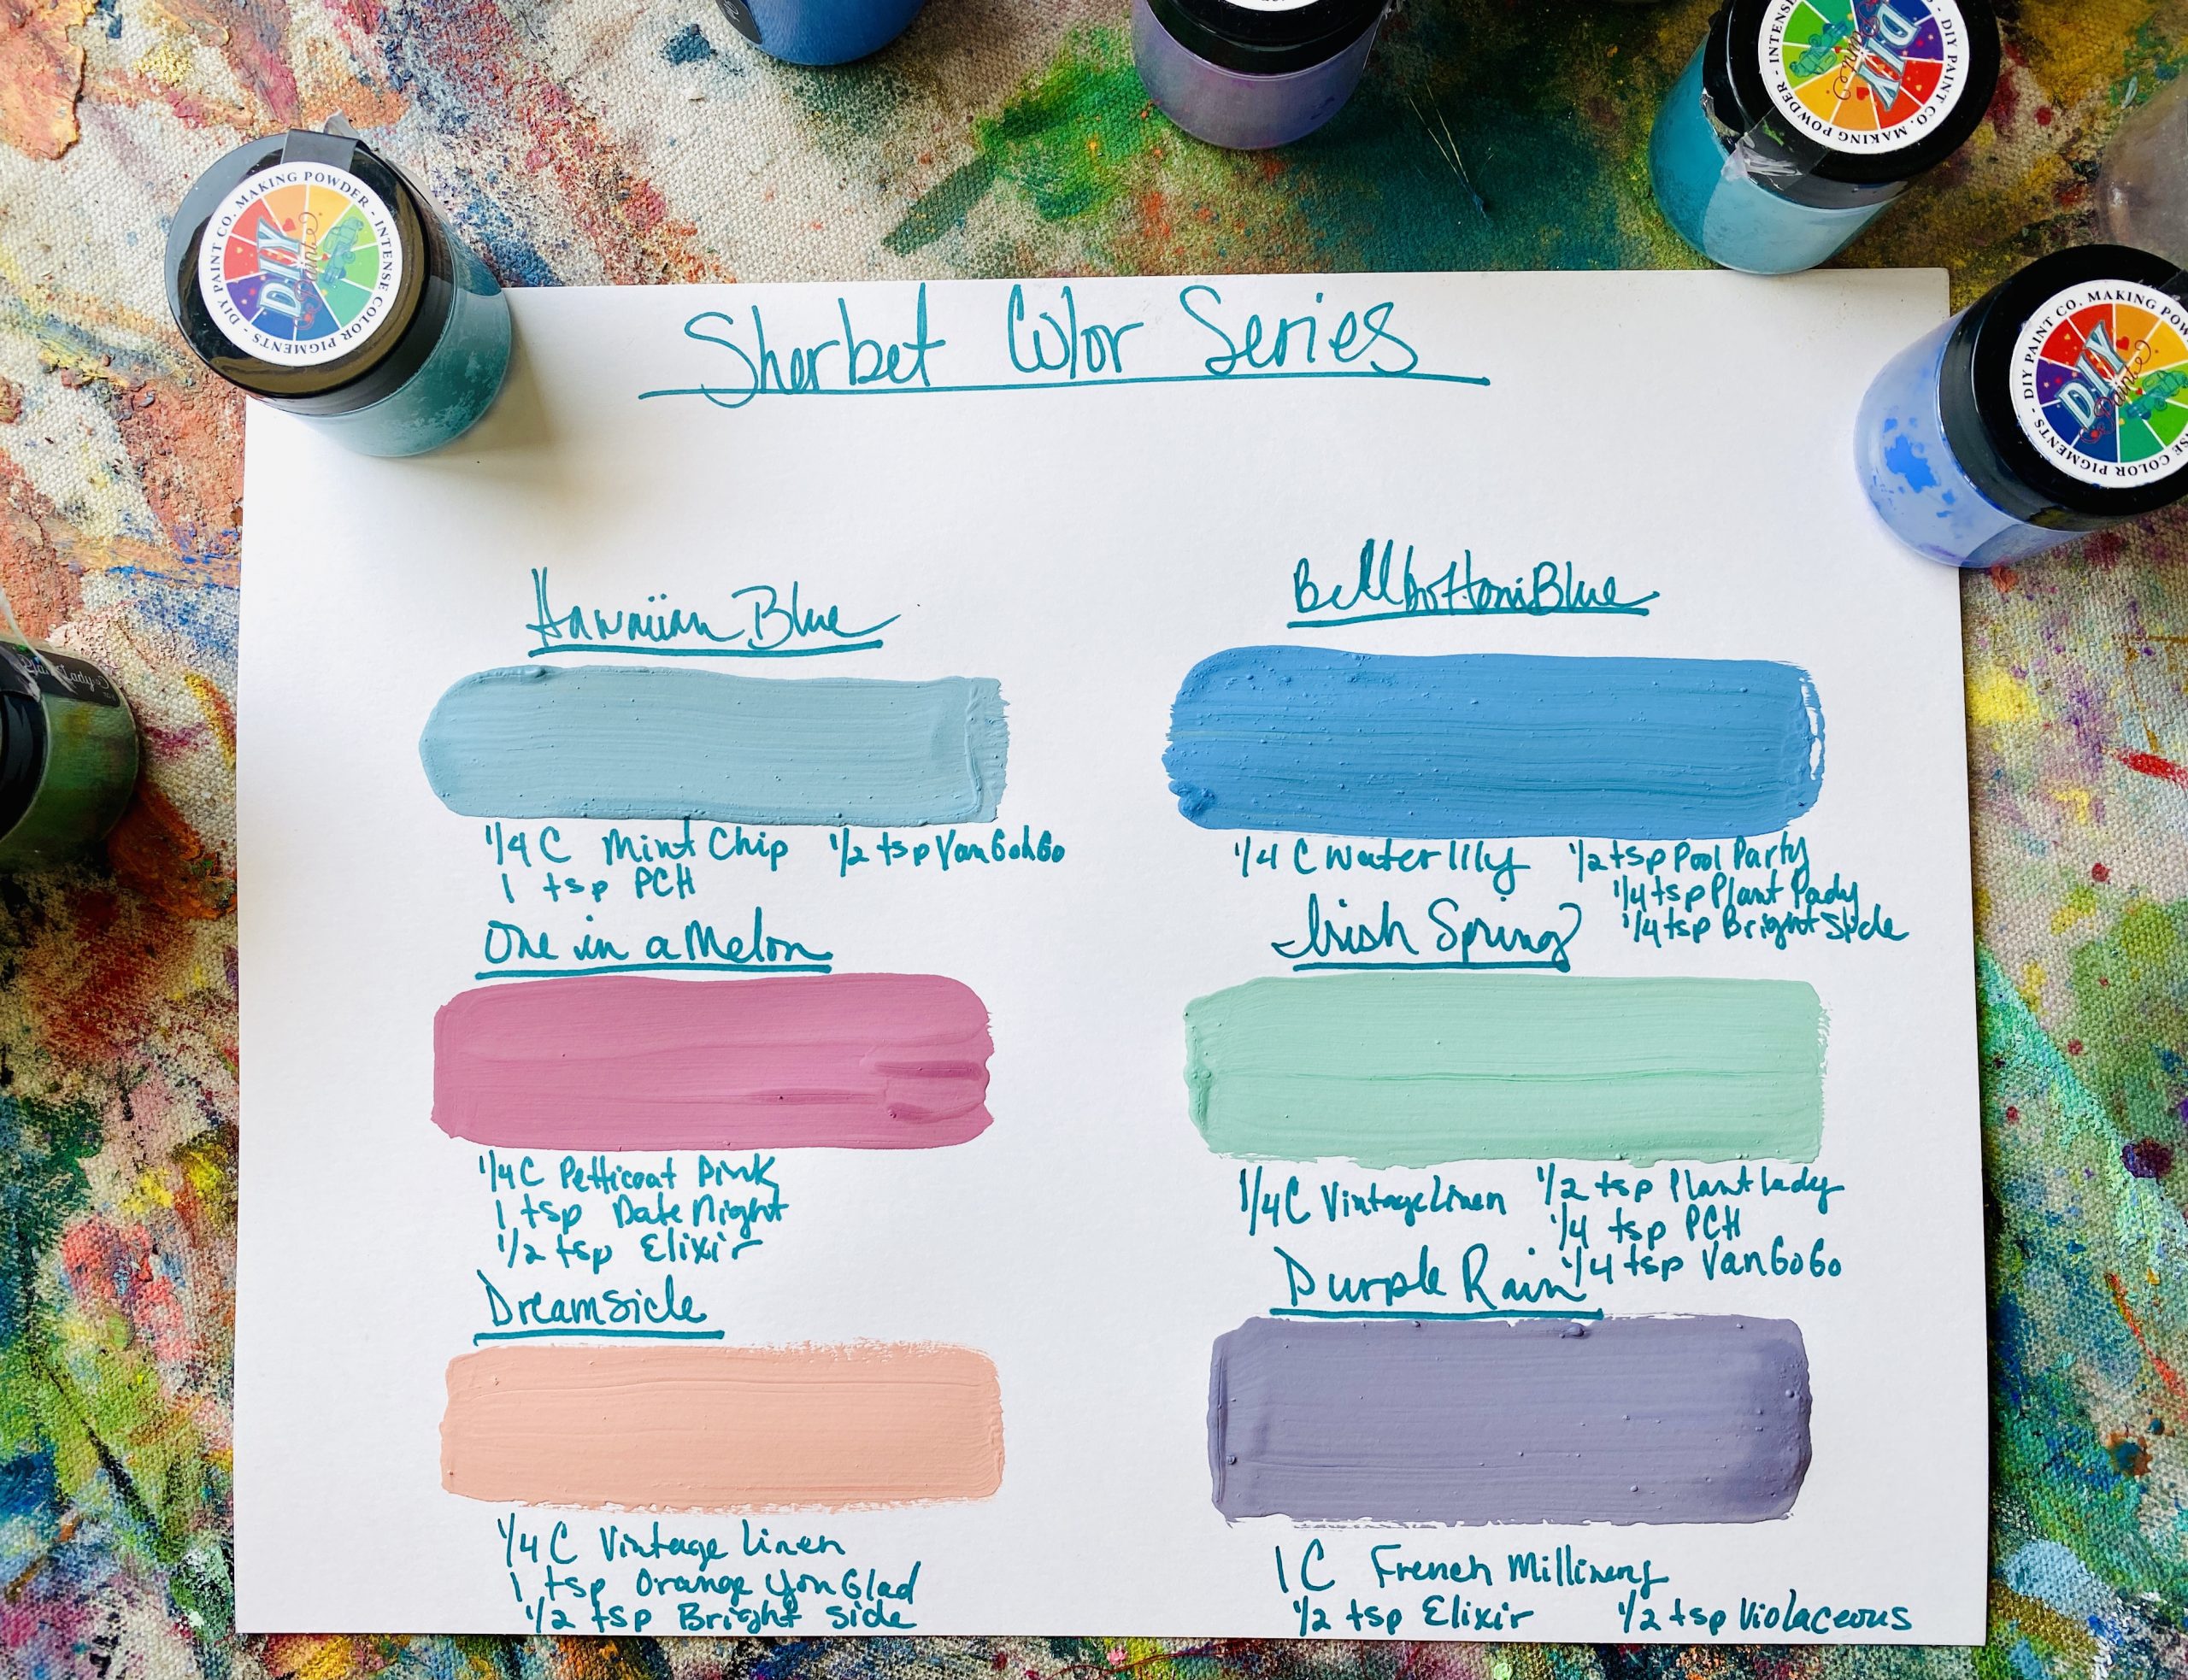 DIY PAINT CO. MAKING POWDER - INTENSE COLOR PIGMENTS -
DIY
Paint
DIY PAINT CO. MAKING POWDER - INTENSE
DIY
Paint
DIY PAINT CO. MAKING POW
SE COLOR PIGMENTS -
DIY
Paint
Lady
Sherbet Color Series
Hawaiian Blue
1/4 C Mint Chip 1/2 tsp VanGohGo
1 tsp PCH
Bellbottom Blue
1/4 C Water lily 1/2 tsp Pool Party
1/4 tsp Plant Pady
1/4 tsp Bright Side
One in a Melon
1/4 C Petticoat Pink
1 tsp Date Night
1/2 tsp Elixir
Irish Spring
1/4 C Vintage Linen 1/2 tsp Plant Lady
1/4 tsp PCH
1/4 tsp VanGoGo
Dreamsicle
1/4 C Vintage Linen
1 tsp Orange You Glad
1/2 tsp Bright Side
Purple Rain
1 C French Millinery
1/2 tsp Elixir 1/2 tsp Violaceous